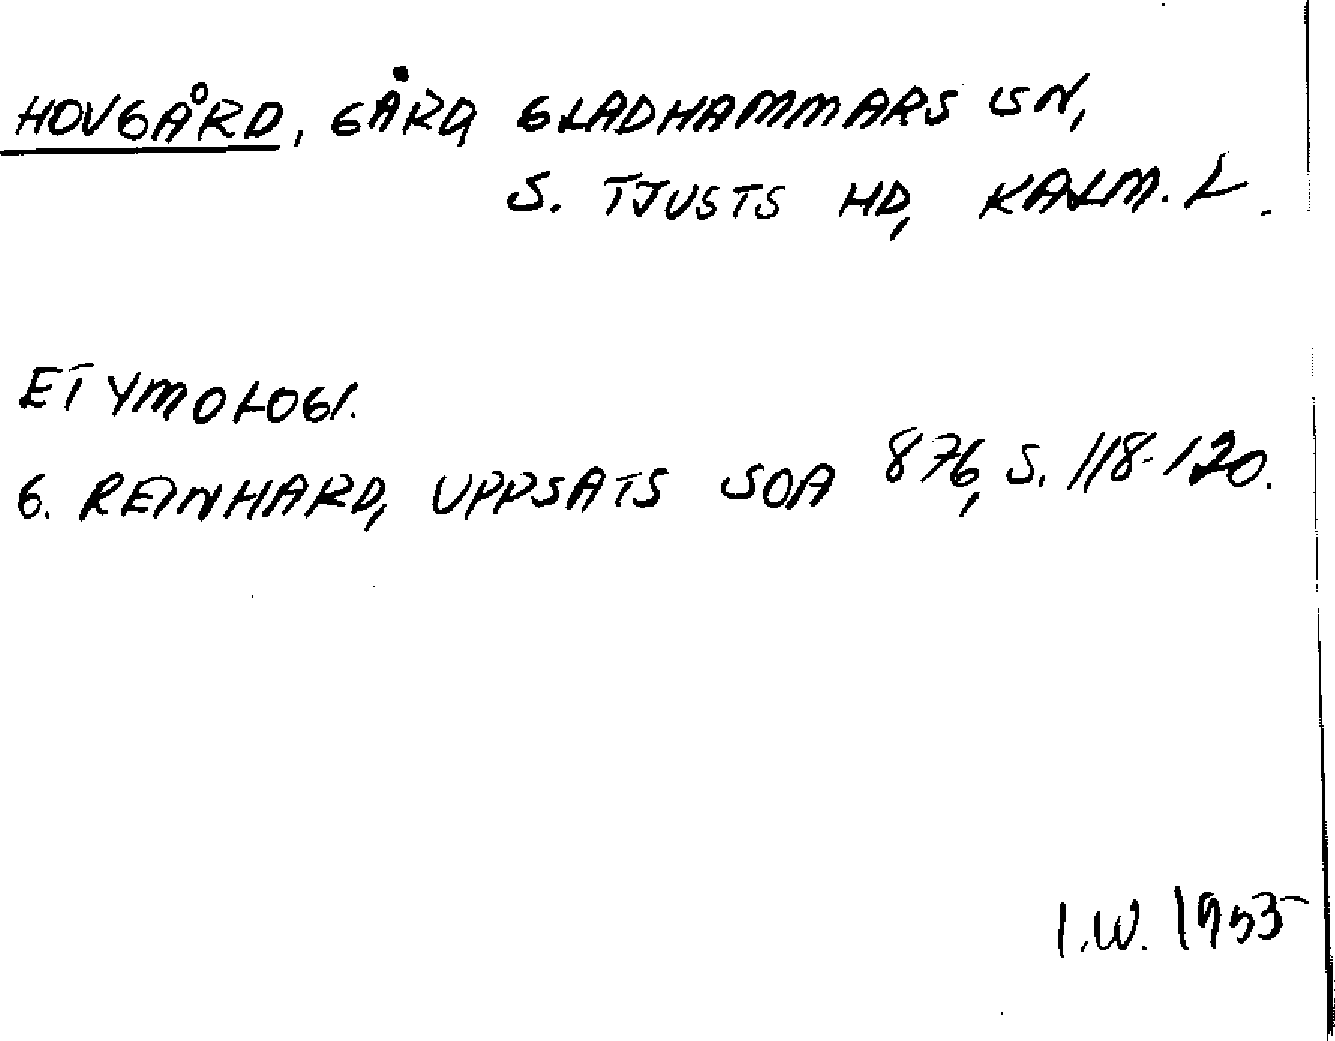 HOVGÅRD, GÅRD, GLADHAMMARS SN,
S. TJUSTS HD, KALM. L.
ETYMOLOGI.
G. REINHARD, UPPSATS SOA 876, S. 118-120.
I.W. 1953